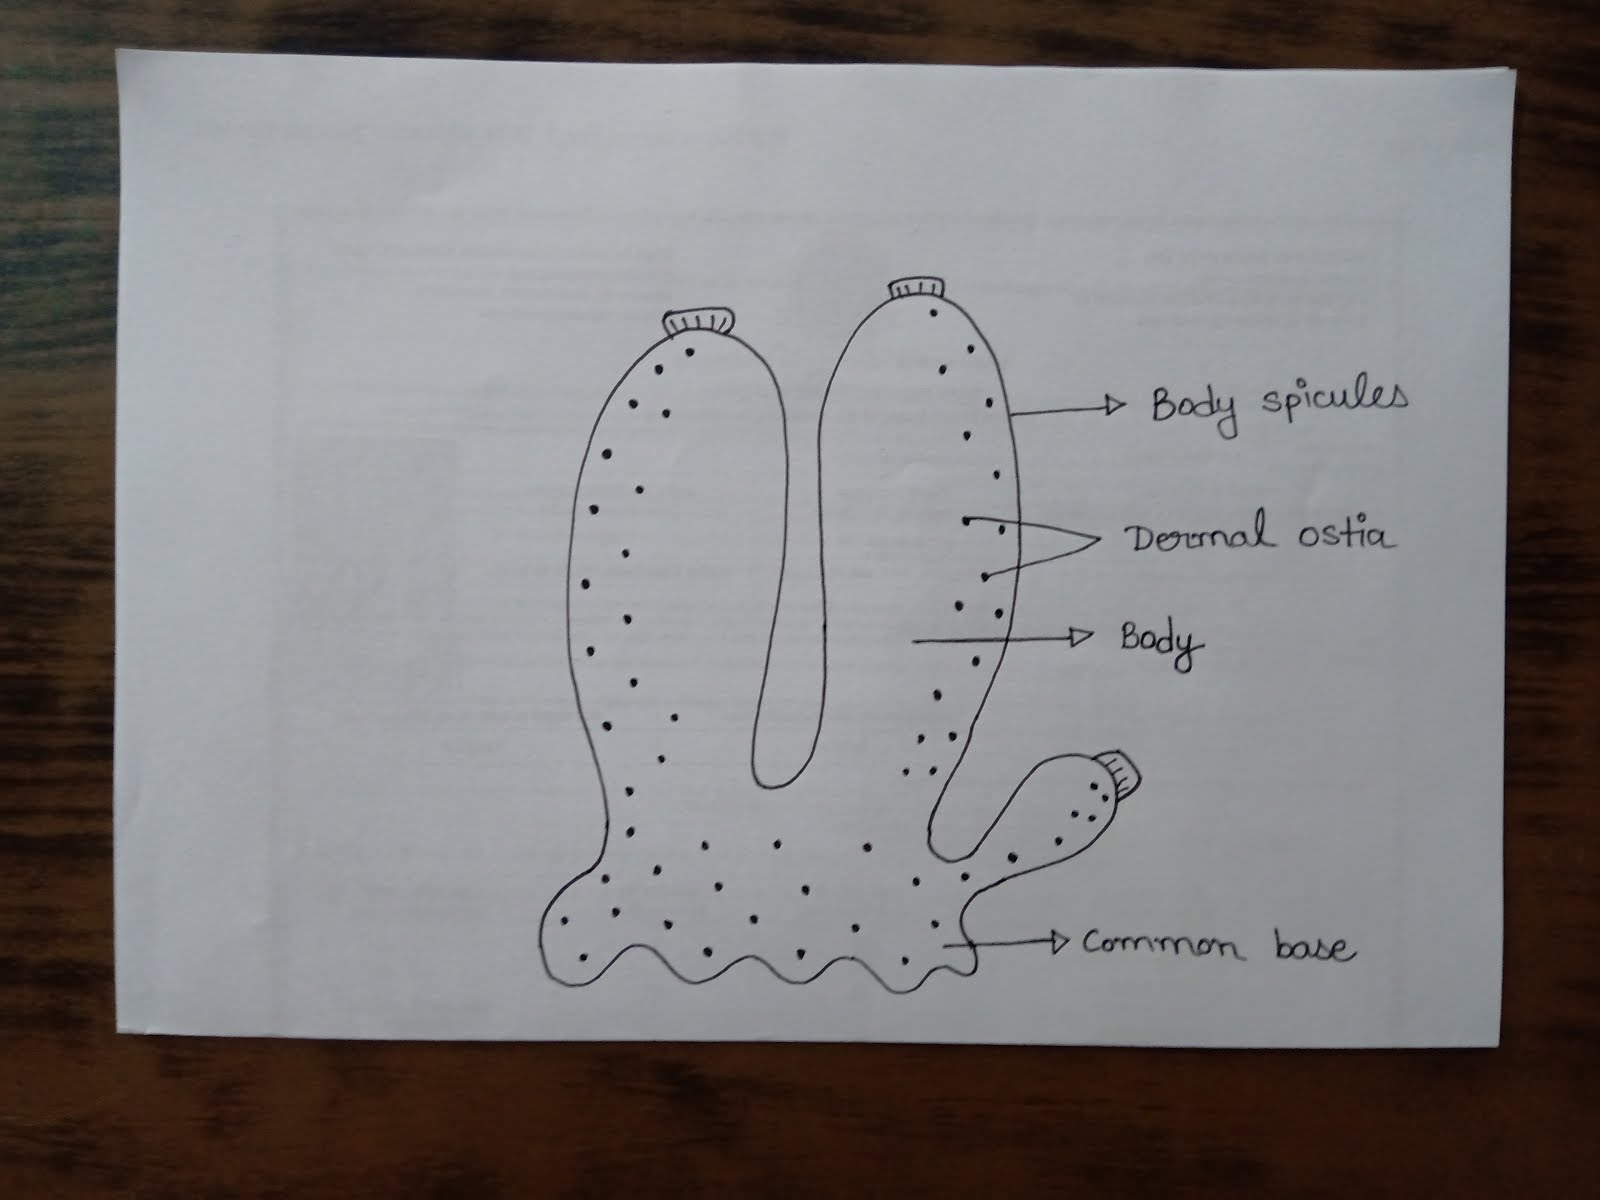 Body spicules
Dermal ostia
Body
Common base